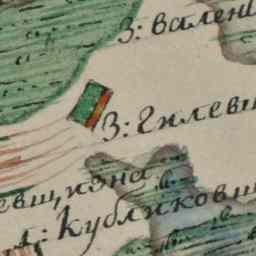 З: вален
З: гилевщ
евщизна
Кубликовщ